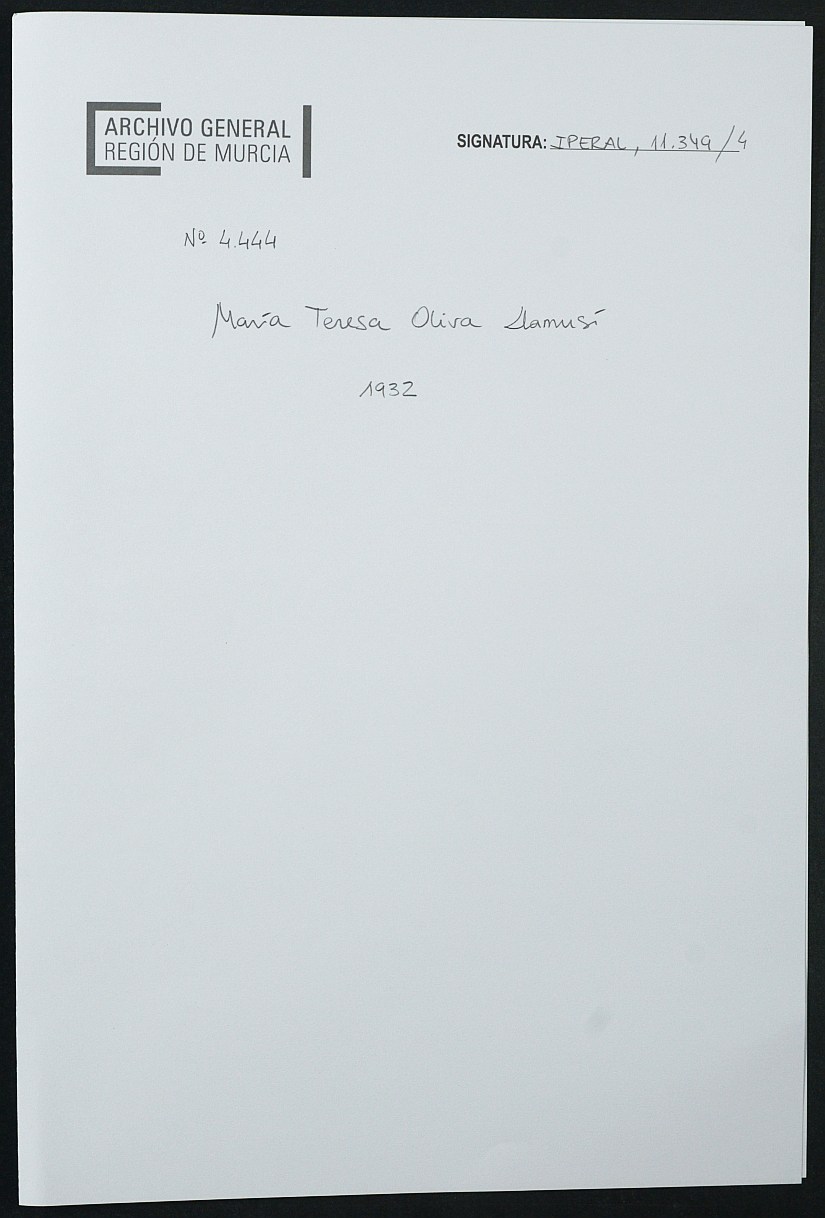 ARCHIVO GENERAL
REGIÓN DE MURCIA
SIGNATURA: IPERAL, 11.349/4
Nº 4.444
María Teresa Oliva Llamusí
1932